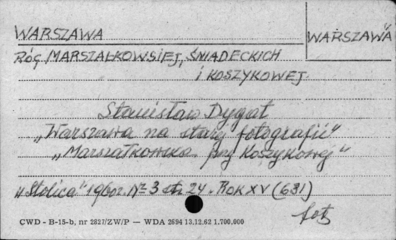 WARSZAWA
WARSZAWA
RÓG MARSZAŁKOWSIEJ, ŚNIADECKICH
I KOSZYKOWEJ
Stanisław Dygat
„Warszawa na starej fotografii"
„Marszałkowska przy Koszykowej"
„Stolica" 1960r. Nr 3 str. 24 - ROK XV (631)
fot
CWD - B-15-b, nr 2827/ZW/P — WDA 2694 13.12.62 1.700.000